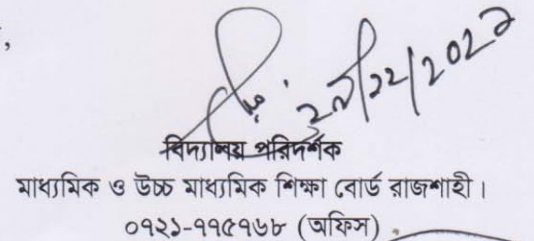 ,
বিদ্যালয় পরিদর্শক
মাধ্যমিক ও উচ্চ মাধ্যমিক শিক্ষা বোর্ড রাজশাহী।
০৭২১-৭৭৫৭৬৮ (অফিস)